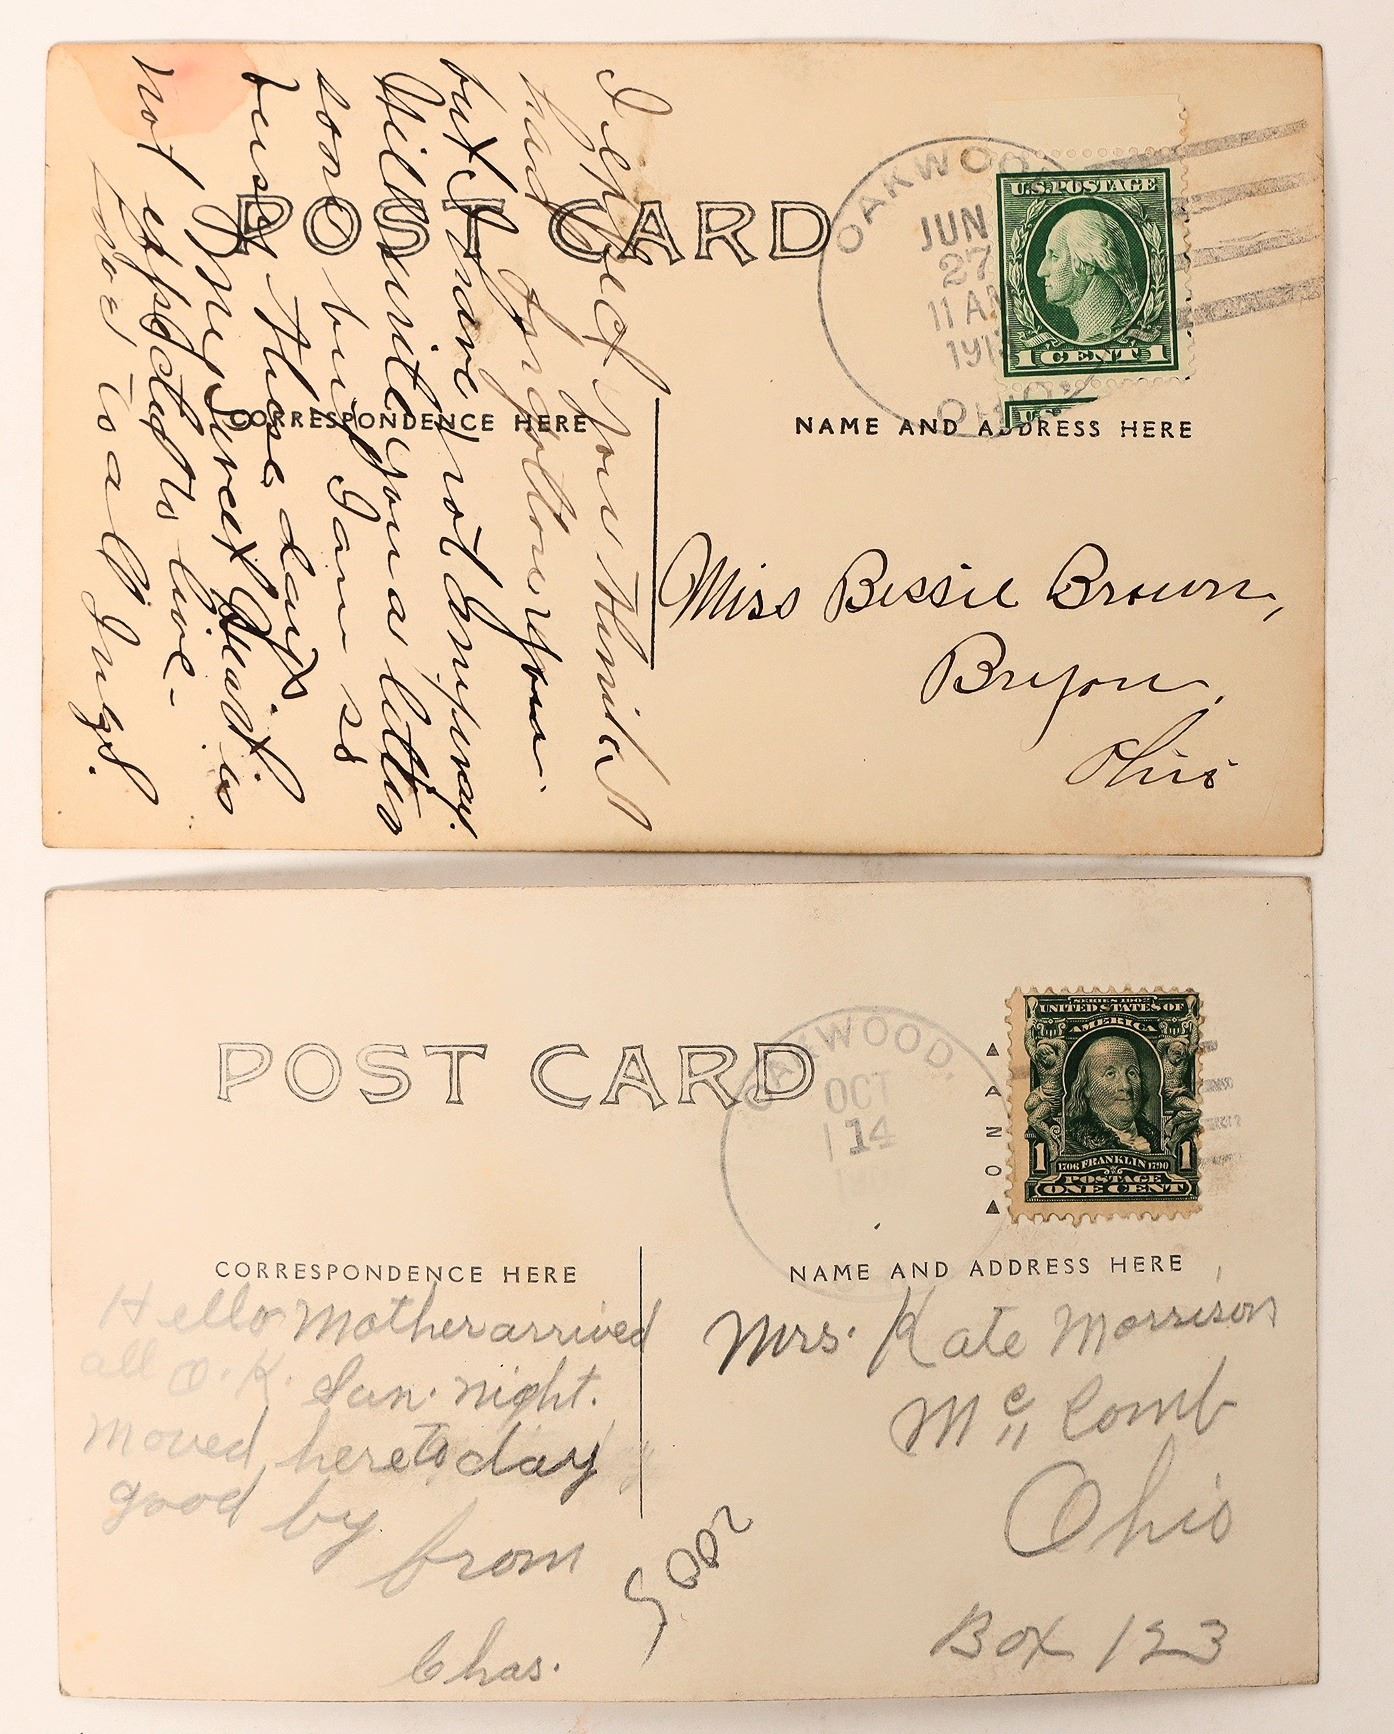 POST CARD
CORRESPONDENCE HERE
NAME AND ADDRESS HERE
OAKWOOD
JUN
27
11 AM
191
OHIO
U.S. POSTAGE
1 CENT 1
I expect you think I
had forgotten you
but I have not anyway.
Will write you a letter
soon but I am so
busy these days
Dry is
not expected to live -
Love to all
Miss Bessie Brown,
Bryon,
Ohio
POST CARD
CORRESPONDENCE HERE
NAME AND ADDRESS HERE
OAKWOOD,
OCT
14
SERIES 1902
UNITED STATES OF
AMERICA
1706 FRANKLIN 1790
1 1
POSTAGE
ONE CENT
Hello Mother arrived
all O.K. Sun. night.
Moved here to day
good by from
Chas.
Mrs. Kate Morrison
Mc Comb
Ohio
Box 123